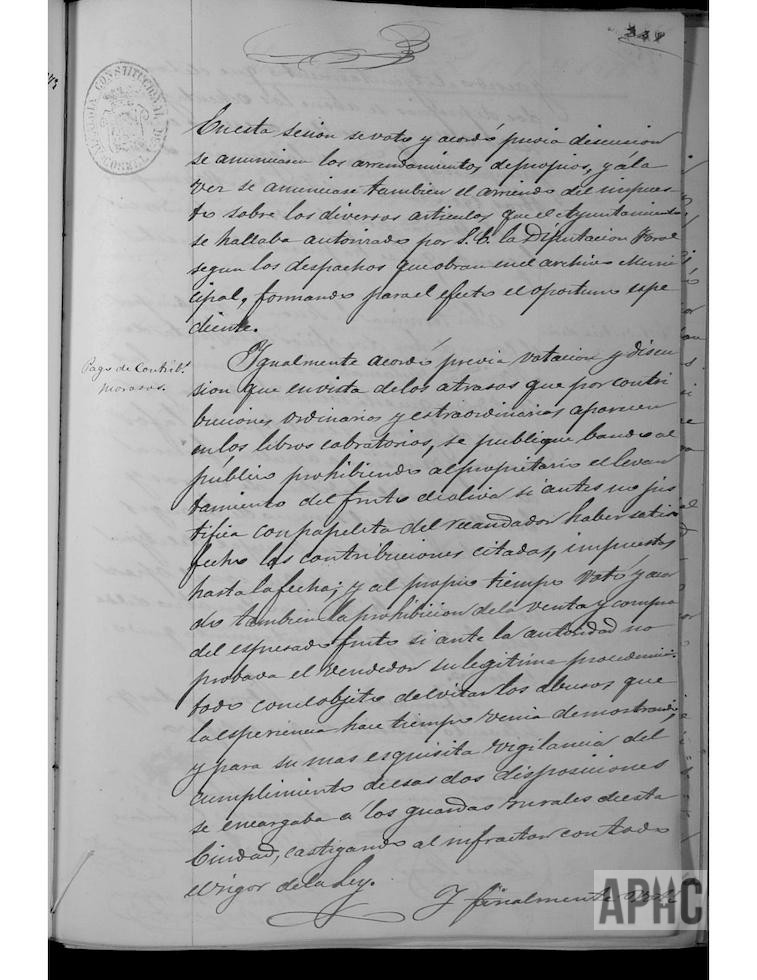 ALCALDIA CONSTITUCIONAL DE
CORELLA
En esta sesion se voto y acordó previa discusion
se anunciasen los arrendamientos de propios, y a la
vez se anunciase tambien el arriendo del impues-
to sobre los diversos articulos que el Ayuntamiento
se hallaba autorizado por S. E. la Diputacion Foral
segun los despachos que obran en el archivo Muni
cipal, formando para el efecto el oportuno espe
diente.
Pago de Contribs.
morosos.
Igualmente acordó previa votacion y discu
sion que en vista de los atrasos que por contri
buciones ordinarias y estraordinarias aparecen
en los libros cobratorios, se publique bando al
publico prohibiendo al propietario el levan
tamiento del fruto de oliva si antes no jus
tifica con papeleta del recaudador haber satis
fecho las contribuciones citadas, impuestas
hasta la fecha; y al propio tiempo votó y acor
do tambien la prohibicion de la venta y compra
del espresado fruto si ante la autoridad no
probava el vendedor su legitima procedencia
todo con el objeto de evitar los abusos que
la esperiencia hace tiempo venia demostrando,
y para su mas esquisita vigilancia del
cumplimiento de esas dos disposiciones
se encargaba á los guardas rurales de esta
Ciudad, castigando al infractor con todo
el rigor de la Ley.
Y finalmente
APHC